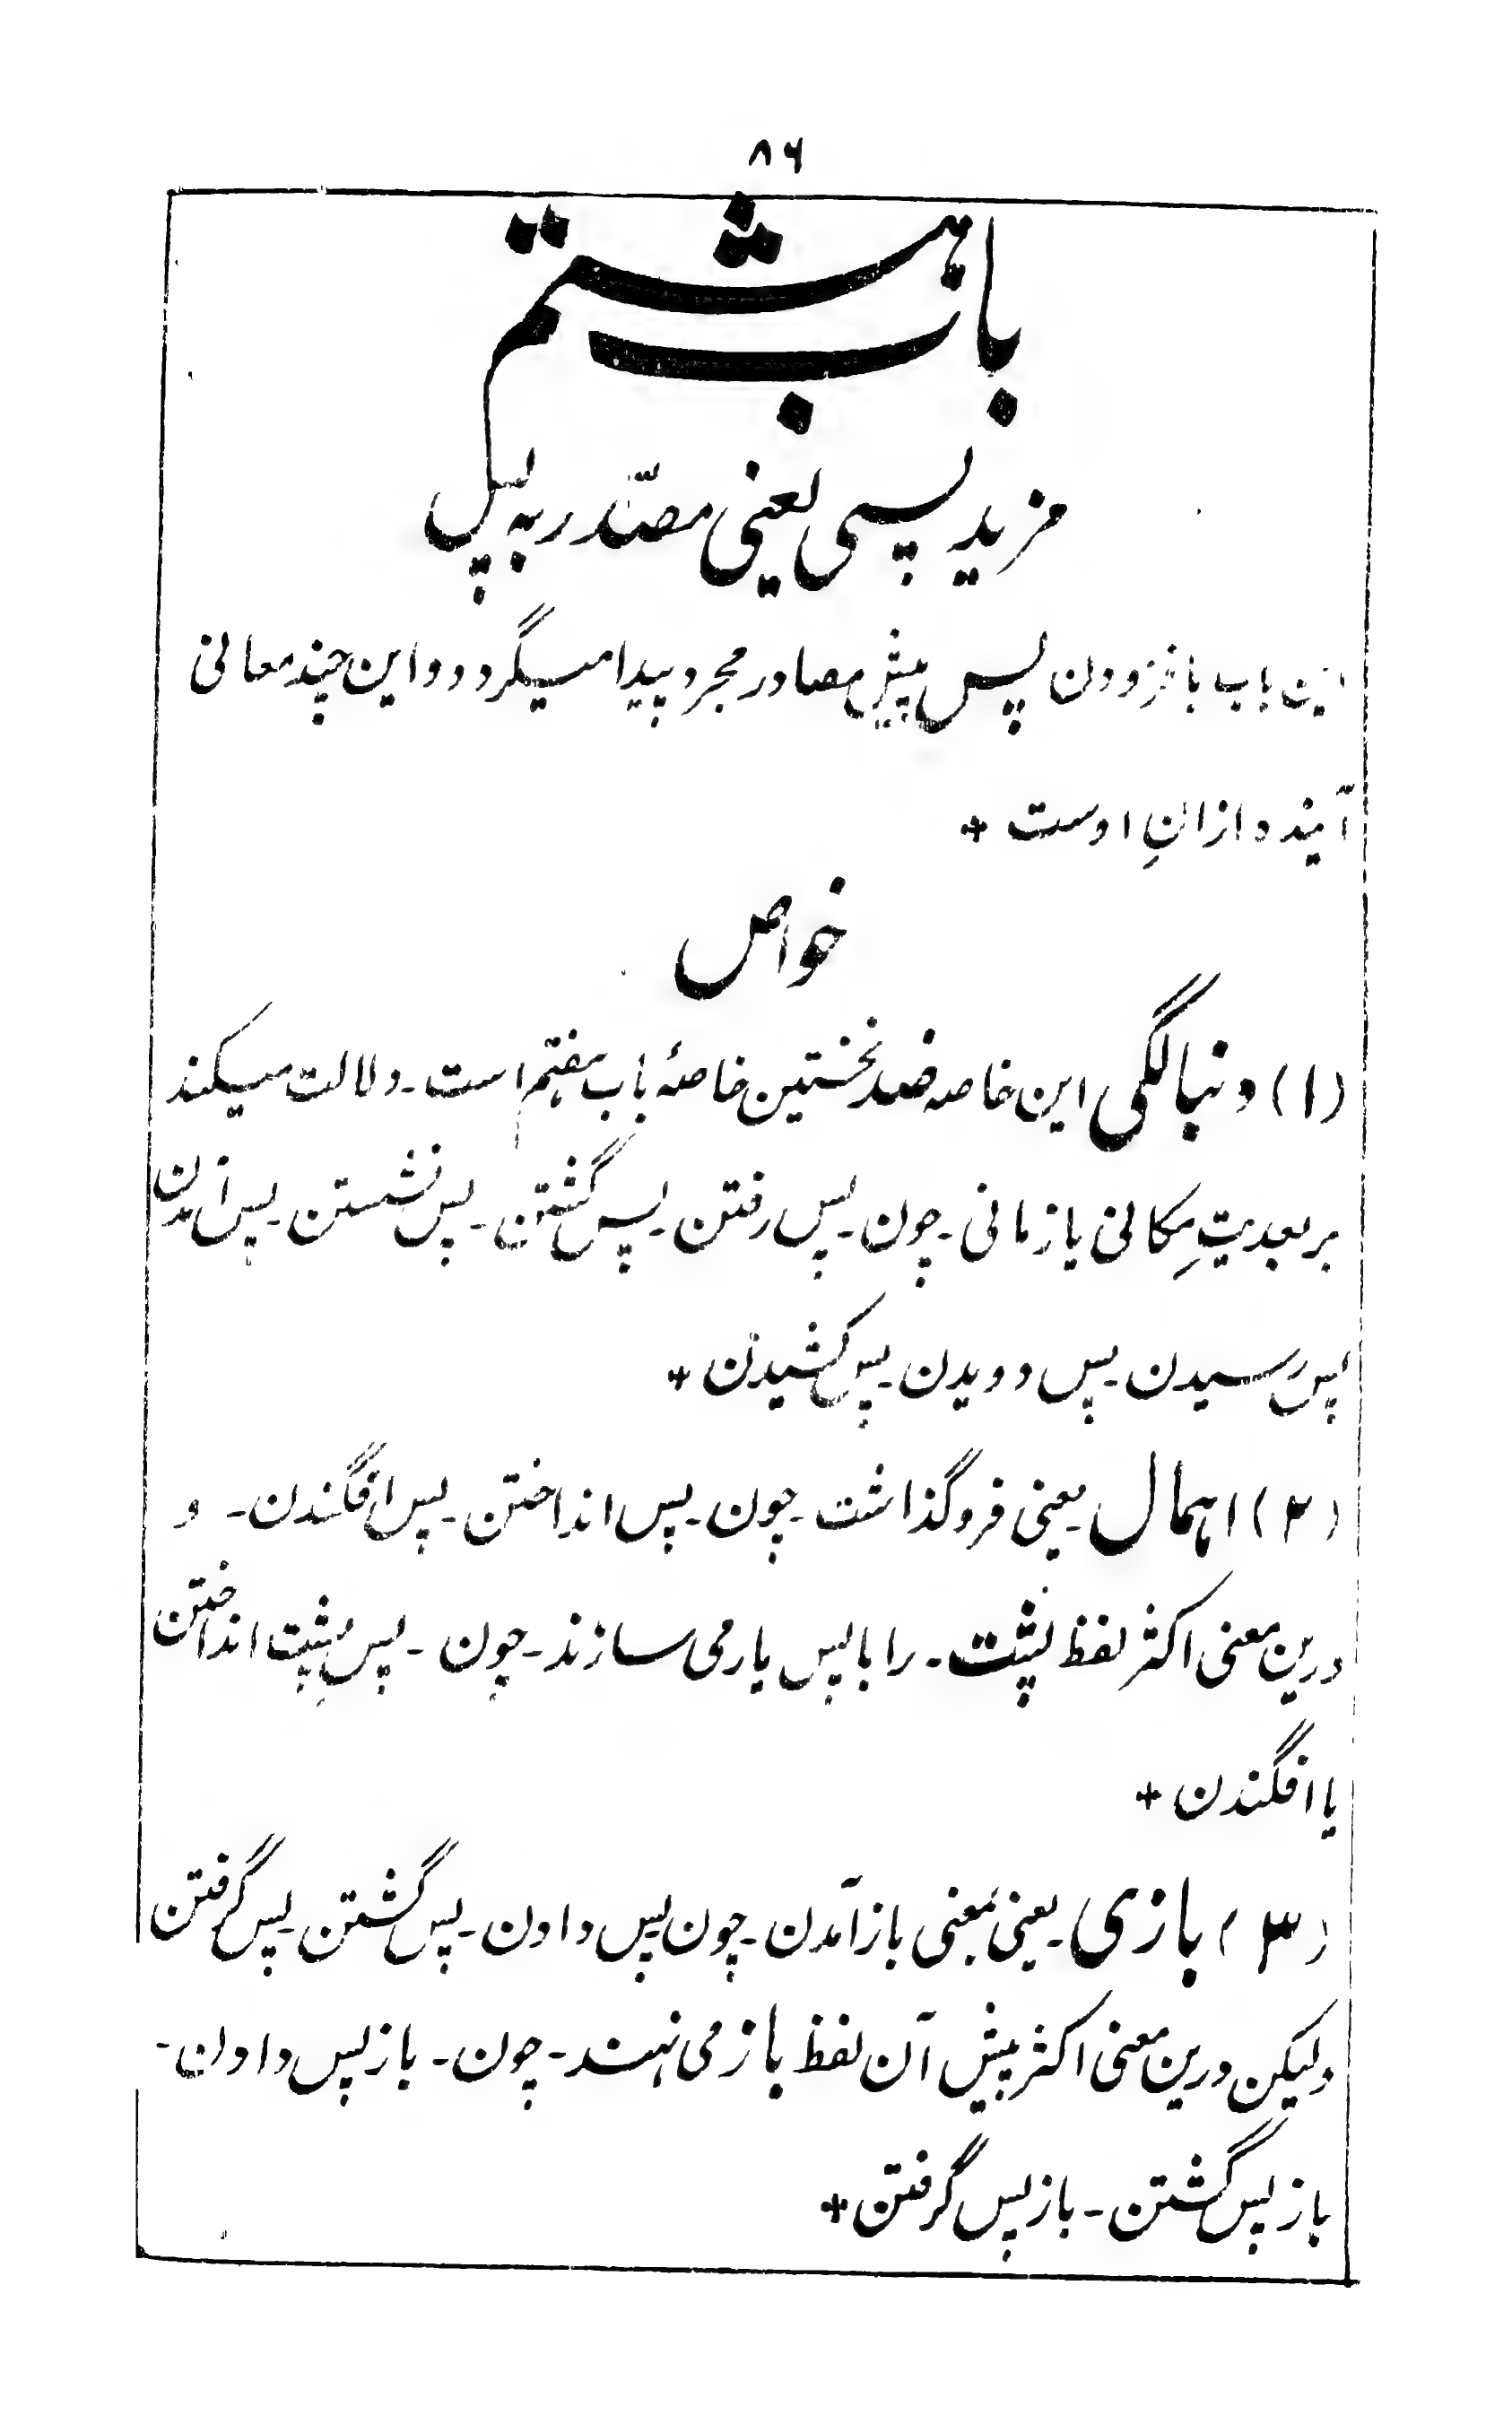 ۸۶
باب هشتم
مزید پسی یعنی مصدّر به پس
این باب بافزودن پس پیش مصادر مجرد پیدا میگردد و این چند معانی
آینده ازانِ اوست +
خواص
(۱) دنبالگی این خاصه ضد نخستین خاصهٔ باب هفتم است - دلالت میکند
بر بعدیتِ مکانی یا زمانی - چون - پس رفتن - پس گشتن - پس نشستن - پس آمدن
پس رسیدن - پس دویدن - پس کشیدن +
(۲) اهمال - یعنی فروگذاشت - چون - پس انداختن - پس افگندن - و
درین معنی اکثر لفظ پشت - را با پس یار می سازند - چون - پسِ پشت انداختن
یا افگندن +
(۳) بازی - یعنی بمعنی باز آمدن - چون پس دادن - پس گشتن - پس گرفتن
ولیکن درین معنی اکثر پیش آن لفظ باز می نهند - چون - باز پس دادن -
باز پس گشتن - باز پس گرفتن +